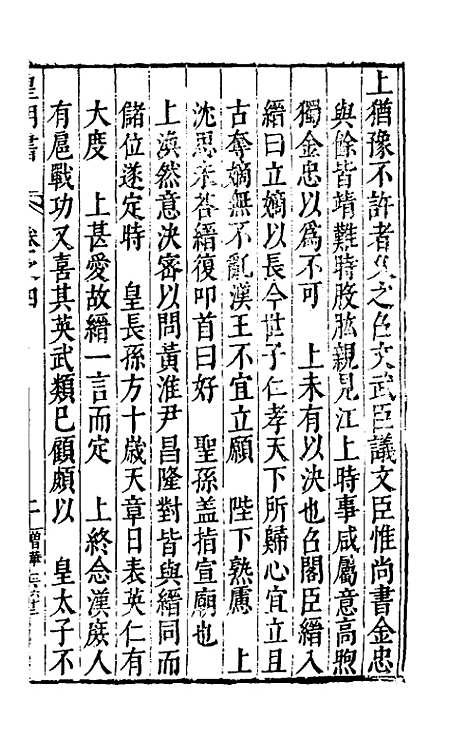 上猶豫不許者久之召文武臣議文臣惟尚書金忠
與餘皆靖難時股肱親見江上時事咸屬意高煦
獨金忠以爲不可　上未有以決也召閣臣縉入
縉曰立嫡以長今世子仁孝天下所歸心宜立且
古奪嫡無不亂漢王不宜立願　陛下熟慮　上
沈思未荅縉復叩首曰好　聖孫盖指宣廟也
上渙然意決審以問黃淮尹昌隆對皆與縉同而
儲位遂定時　皇長孫方十歲天章日表英仁有
大度　上甚愛故縉一言而定　上終念漢庶人
有扈戰功又喜其英武類巳顧頗以　皇太子不
皇明書　卷之四